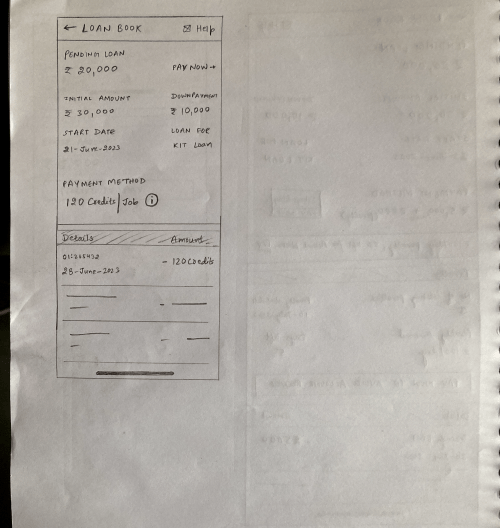 ← LOAN BOOK ✉ Help
PENDING LOAN
₹ 20,000 PAY NOW →
INITIAL AMOUNT DOWNPAYMENT
₹ 30,000 ₹ 10,000
START DATE LOAN FOR
21-June-2023 KIT Loan
PAYMENT METHOD
120 Credits/Job ⓘ
Details Amount
28-June-2023 - 120 Credits